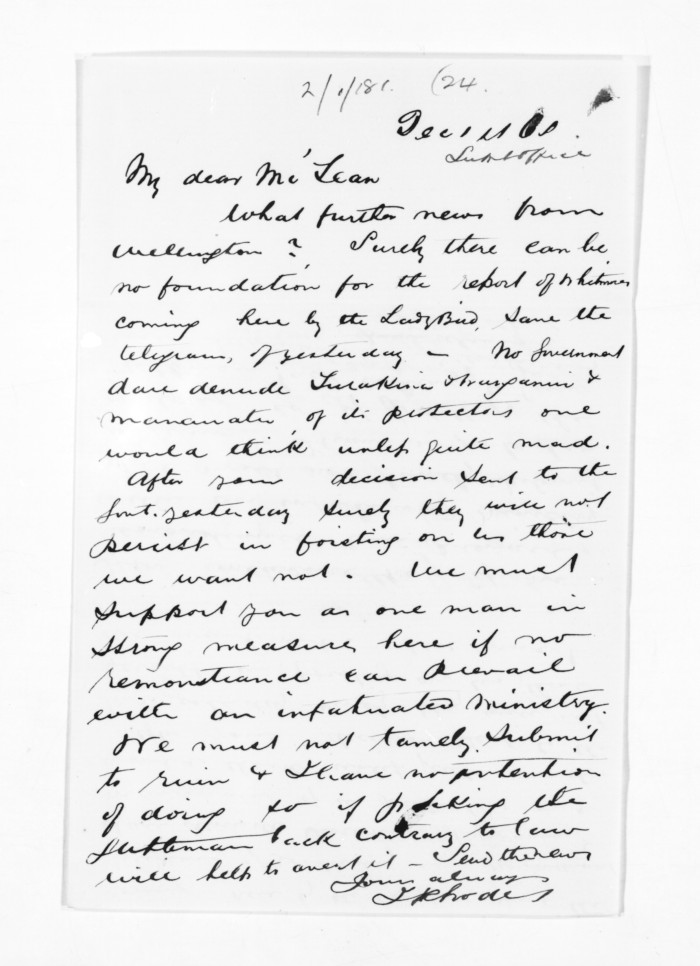 2/1/181. (24.
Dec 1st 68.
My dear McLean
What further news from
Wellington? Surely there can be
no foundation for the report of Whitmores
coming here by the LadyBird, save the
telegram, of yesterday — No Government
dare denude Turakina Wanganui &
Manawatu of its protectors one
would think unless quite mad.
After your decision sent to the
Govt. yesterday surely they will not
persist in foisting on us those
we want not. We must
support you as one man in
strong measures here if no
remonstrance can prevail
with an infatuated ministry.
We must not tamely submit
to ruin & I have no intention
of doing so if packing the
gentleman back contrary to law
will help to avert it — Send the news
Yours always
J Rhodes